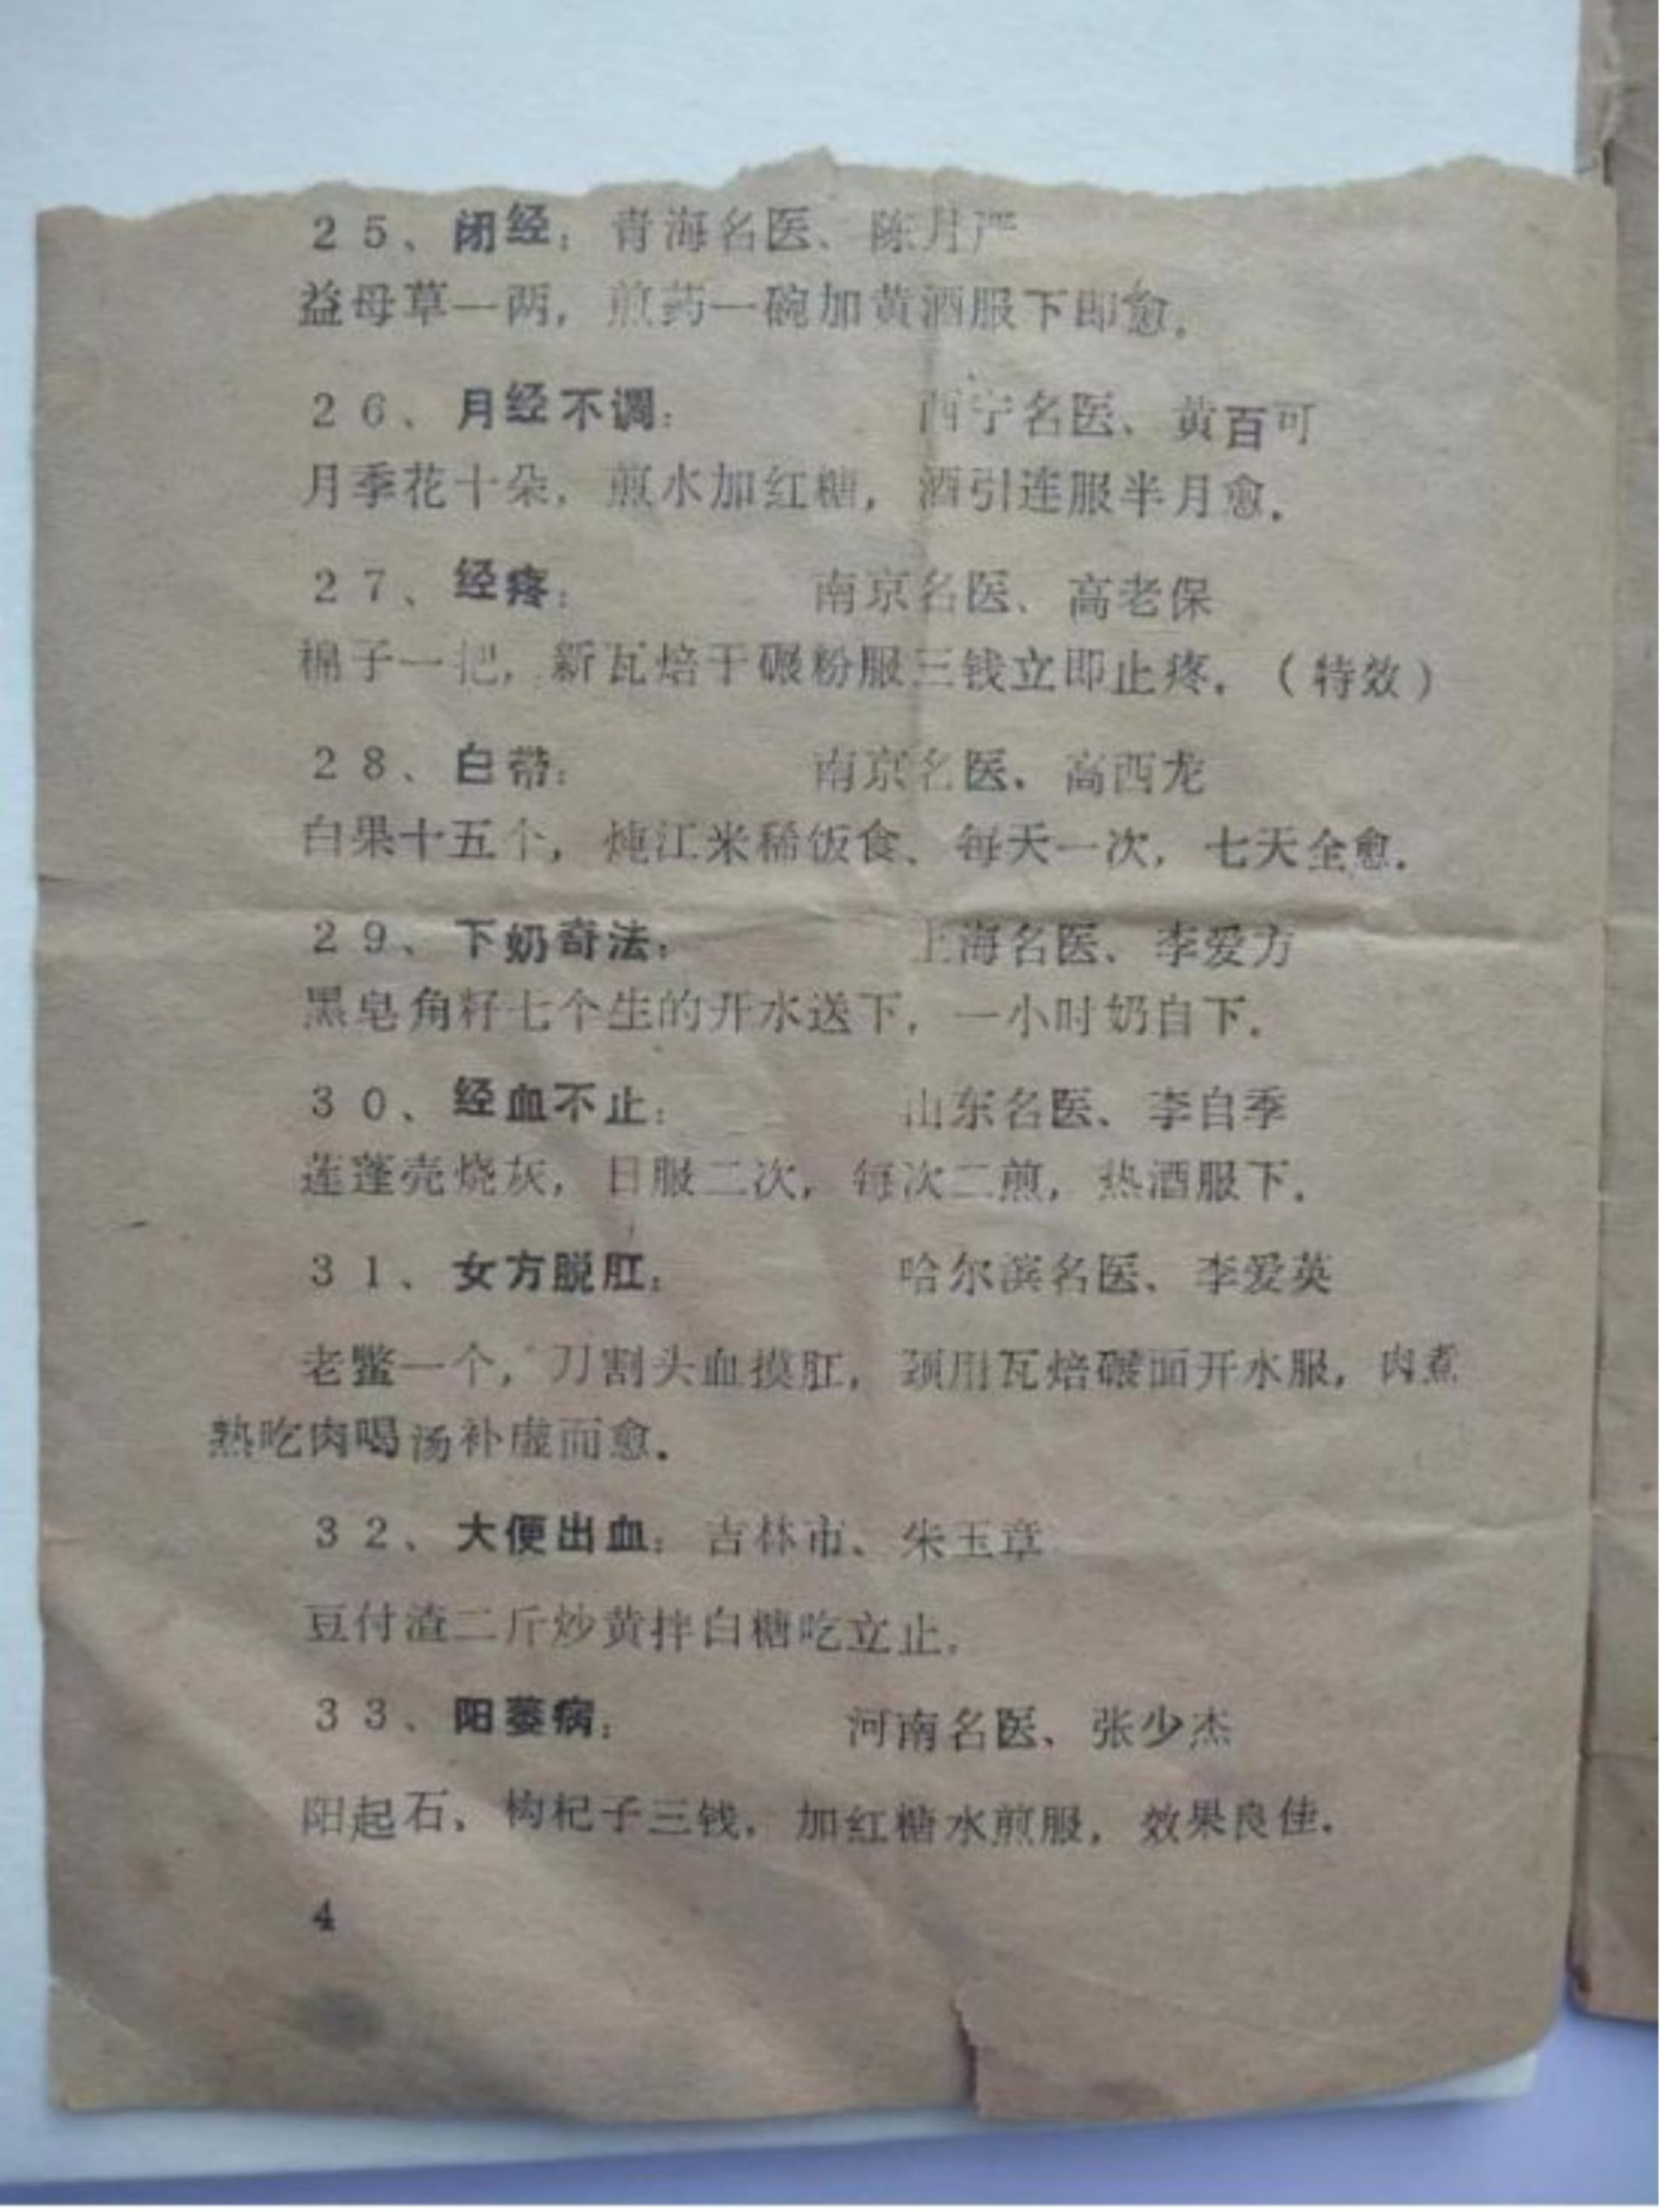 25、闭经：青海名医、陈月严
益母草一两，煎药一碗加黄酒服下即愈。
26、月经不调：　西宁名医、黄百可
月季花十朵，煎水加红糖，酒引连服半月愈。
27、经疼：　南京名医、高老保
棉子一把，新瓦焙干碾粉服三钱立即止疼。（特效）
28、白带：　南京名医、高西龙
白果十五个，炖江米稀饭食、每天一次，七天全愈。
29、下奶奇法：　上海名医、李爱方
黑皂角籽七个生的开水送下，一小时奶自下。
30、经血不止：　山东名医、李自季
莲蓬壳烧灰，日服二次，每次二煎，热酒服下。
31、女方脱肛：　哈尔滨名医、李爱英
老鳖一个，刀割头血摸肛，颈用瓦焙碾面开水服，肉煮
熟吃肉喝汤补虚而愈。
32、大便出血：吉林市、朱玉章
豆付渣二斤炒黄拌白糖吃立止。
33、阳萎病：　河南名医、张少杰
阳起石、枸杞子三钱，加红糖水煎服，效果良佳。
4